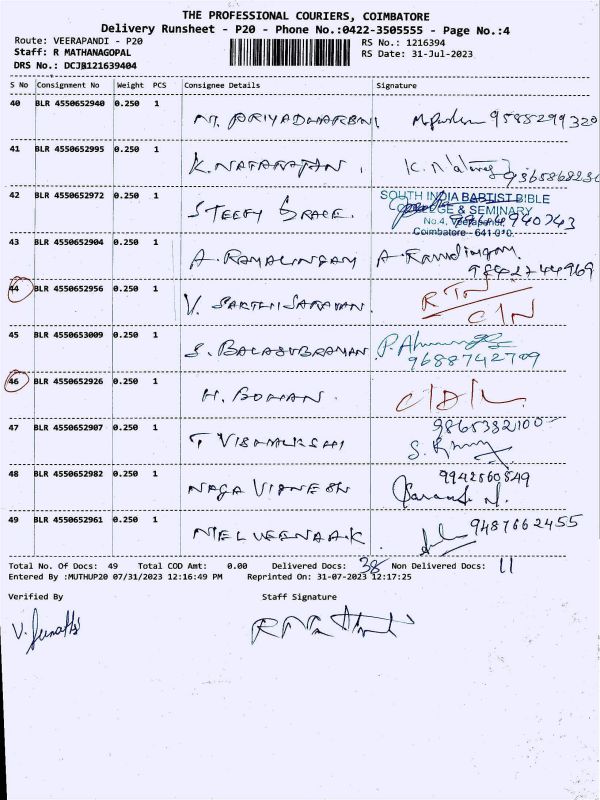 THE PROFESSIONAL COURIERS, COIMBATORE
Delivery Runsheet - P20 - Phone No.:0422-3505555 - Page No.:4
Route: VEERAPANDI - P20
RS No.: 1216394
Staff: R MATHANAGOPAL
RS Date: 31-Jul-2023
DRS No.: DCJB121639404
S No Consignment No Weight PCS Consignee Details Signature
40 BLR 4550652940 0.250 1 M. PRIYADHARSNI 9585299320
41 BLR 4550652995 0.250 1 K. NATARAJAN.
42 BLR 4550652972 0.250 1 STEEFY GRACE.
SOUTH INDIA BAPTIST BIBLE
COLLEGE & SEMINARY
No.4, Veerapandi,
Coimbatore - 641 019.
43 BLR 4550652904 0.250 1 A. RAMALINGAM
44 BLR 4550652956 0.250 1 V. SAKTHI SARAVAN. RTN
45 BLR 4550653009 0.250 1 S. BALASUBRAMAN 9688742709
46 BLR 4550652926 0.250 1 H. BOMAN. C/D/L
47 BLR 4550652907 0.250 1 T VISHALKSHI 9865382100
48 BLR 4550652982 0.250 1 NAGA VIGNESH 9942860849
49 BLR 4550652961 0.250 1 MELVEENAA.K. 9487662455
Total No. Of Docs: 49 Total COD Amt: 0.00 Delivered Docs: 38 Non Delivered Docs: 11
Entered By :MUTHUP20 07/31/2023 12:16:49 PM Reprinted On: 31-07-2023 12:17:25
Verified By Staff Signature